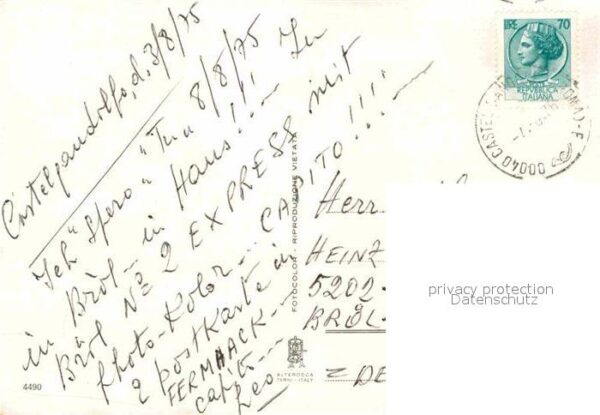 Castelgandolfo, d. 3/8/75
Ich "Spero" Tu 8/8/75 Zu
in Bröl — in Haus!! —
Bröl No 2 EXPRESS mit
photo-Kolor — CAPITO!!! —
2 postkarte in
FERMAACK —
capito —
Leo
FOTOCOLOR - RIPRODUZIONE VIETATA
4490
ALTEROCCA
TERNI - ITALY
LIRE 70
REPUBBLICA
ITALIANA
00040 CASTEL (ROMA)
Herr
HEINZ
5202-
BRÖL-
DE
privacy protection
Datenschutz